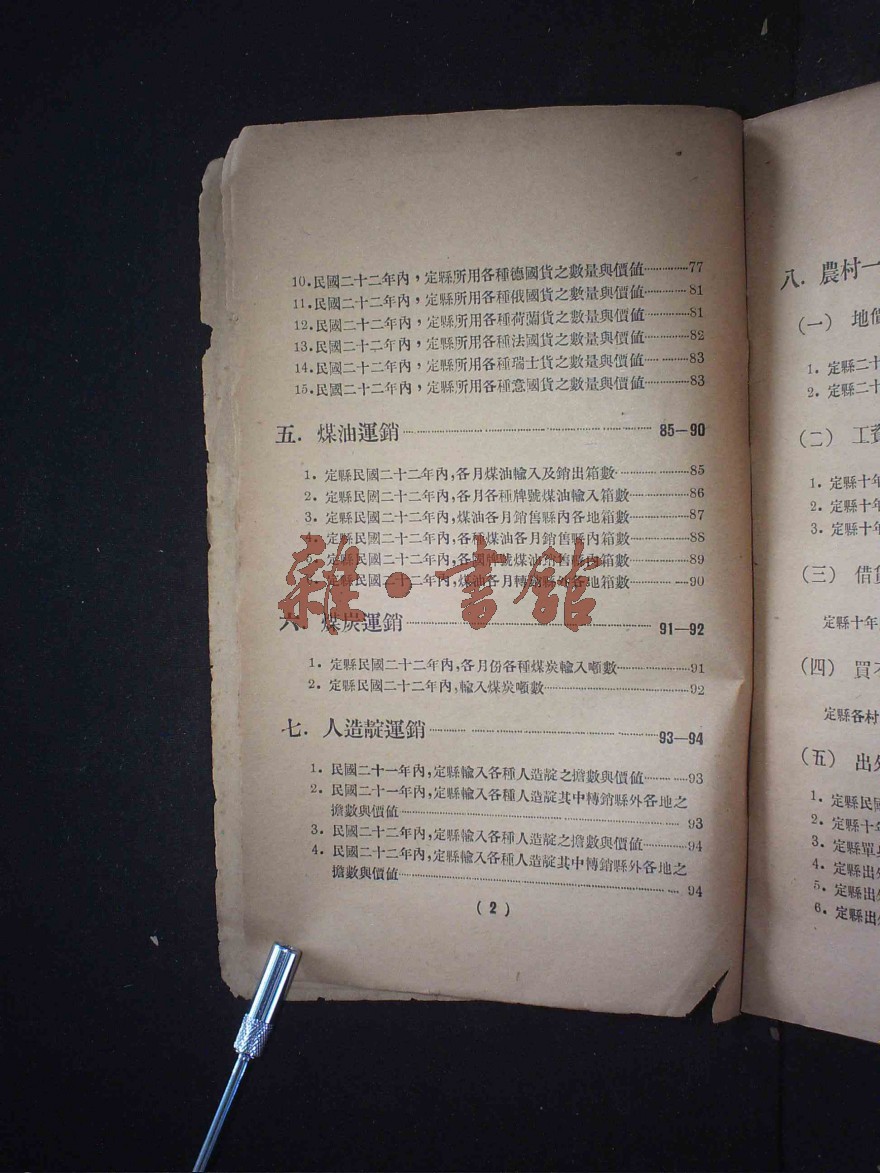 10.民國二十二年內，定縣所用各種德國貨之數量與價值……………77
11.民國二十二年內，定縣所用各種俄國貨之數量與價值……………81
12.民國二十二年內，定縣所用各種荷蘭貨之數量與價值……………81
13.民國二十二年內，定縣所用各種法國貨之數量與價值……………82
14.民國二十二年內，定縣所用各種瑞士貨之數量與價值……………83
15.民國二十二年內，定縣所用各種意國貨之數量與價值……………83
五．煤油運銷……………85—90
1．定縣民國二十二年內，各月煤油輸入及銷出箱數……………85
2．定縣民國二十二年內，各月各種牌號煤油輸入箱數……………86
3．定縣民國二十二年內，煤油各月銷售縣內各地箱數……………87
4．定縣民國二十二年內，各種煤油各月銷售縣內箱數……………88
5．定縣民國二十二年內，各國牌號煤油銷售縣內箱數……………89
6．定縣民國二十二年內，煤油各月轉銷縣外各地箱數……………90
雜·書館
六．煤炭運銷……………91—92
1．定縣民國二十二年內，各月份各種煤炭輸入噸數……………91
2．定縣民國二十二年內，輸入煤炭噸數……………92
七．人造靛運銷……………93—94
1．民國二十一年內，定縣輸入各種人造靛之擔數與價值……………93
2．民國二十一年內，定縣輸入各種人造靛其中轉銷縣外各地之
擔數與價值……………93
3．民國二十二年內，定縣輸入各種人造靛之擔數與價值……………94
4．民國二十二年內，定縣輸入各種人造靛其中轉銷縣外各地之
擔數與價值……………94
（2）
八．農村一
（一） 地價
1．定縣二十
2．定縣二十
（二） 工資
1．定縣十年
2．定縣十年
3．定縣十年
（三） 借貸
定縣十年
（四） 買
定縣各村
（五） 出外
1．定縣民國
2．定縣十年
3．定縣單
4．定縣出外
5．定縣出外
6．定縣出外